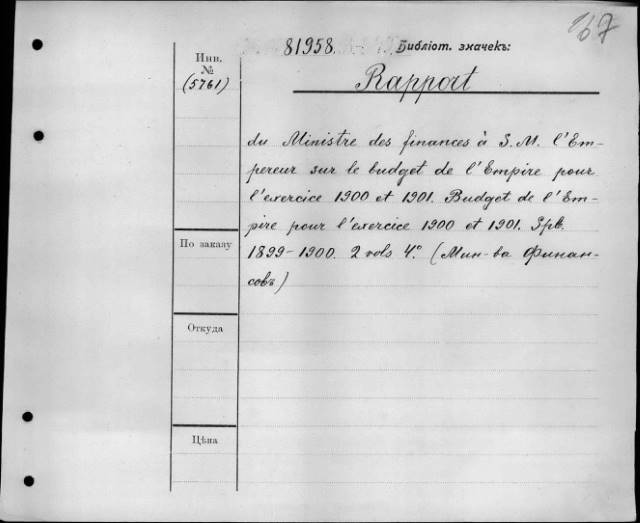 167
81958. Библіот. значекъ:
Инв.
№
(5761)
Rapport
du Ministre des finances à S. M. l'Em-
pereur sur le budget de l'Empire pour
l'exercice 1900 et 1901. Budget de l'Em-
pire pour l'exercice 1900 et 1901. Spb.
1899-1900. 2 vols 4.° (Мин-ва Финан-
совъ)
По заказу
Откуда
Цѣна